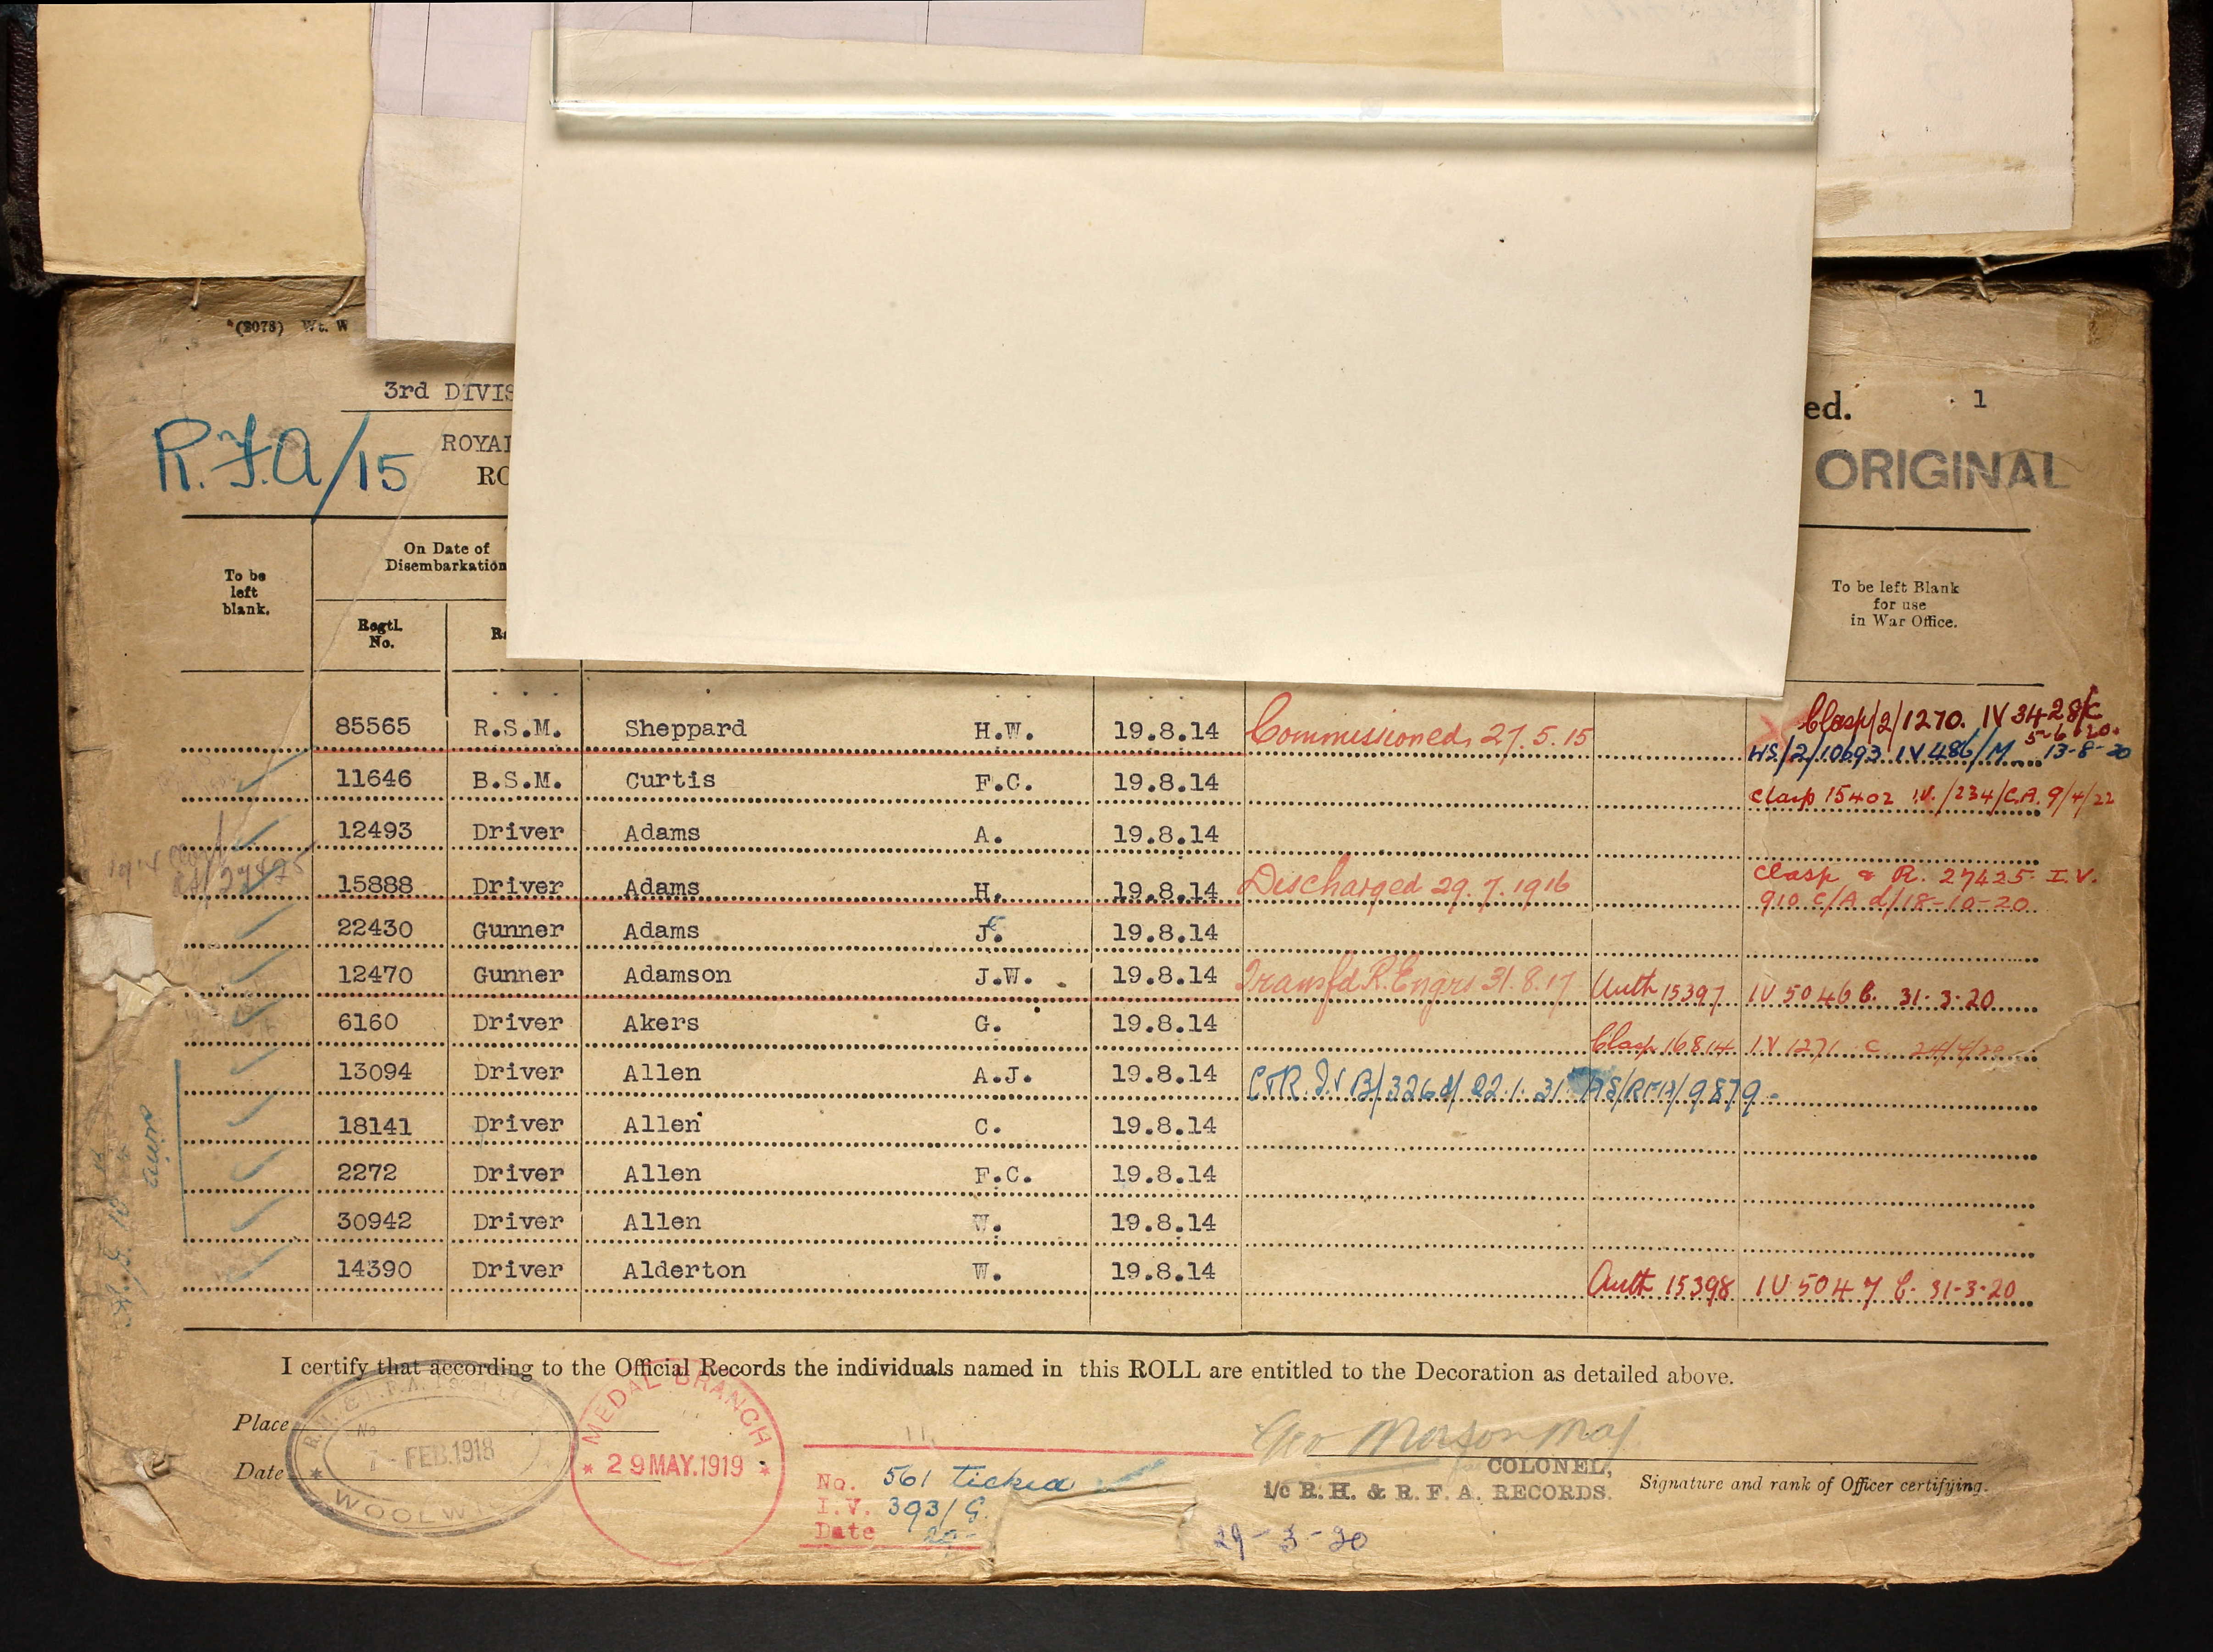 (2078) Wt. W
3rd DIVIS
ed. 1
R.F.A/15
ROYAL
RO
ORIGINAL
To be left blank.
On Date of Disembarkation
To be left Blank for use in War Office.
Regtl. No.
85565 R.S.M. Sheppard H.W. 19.8.14 Commissioned, 27.5.15 Clasp/2/1270. IV 3428/C 5-6-20.
HS/2/10693 IV 486/M 13-8-20
11646 B.S.M. Curtis F.C. 19.8.14 Clasp 15402 I.V./234/C.A. 9/4/22
12493 Driver Adams A. 19.8.14
1914
15888 Driver Adams H. 19.8.14 Discharged 29.7.1916 Clasp & R. 27425 I.V.
910 C/A d/18-10-20
22430 Gunner Adams J. 19.8.14
12470 Gunner Adamson J.W. 19.8.14 Transfd R. Engrs 31.8.17 Auth 15397 IV 5046 C. 31-3-20
6160 Driver Akers G. 19.8.14 Clasp 16814 IV 1271 C 24/4/20
13094 Driver Allen A.J. 19.8.14 22.1.31 HS/RFA/9879
18141 Driver Allen C. 19.8.14
2272 Driver Allen F.C. 19.8.14
30942 Driver Allen W. 19.8.14
14390 Driver Alderton W. 19.8.14 Auth 15398 IV 5047 C. 31-3-20
I certify that according to the Official Records the individuals named in this ROLL are entitled to the Decoration as detailed above.
MEDAL BRANCH
Place
No
7 - FEB. 1918
WOOLWICH
29 MAY. 1919
Date
COLONEL,
i/c R.H. & R.F.A. RECORDS.
Signature and rank of Officer certifying.
No. 561 ticked
I.V. 393/G.
Date
29-3-20